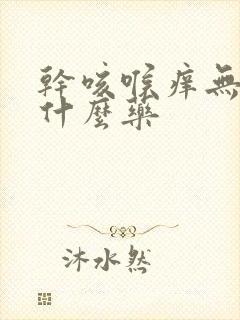 幹咳喉痒無
什麼藥
沐水然